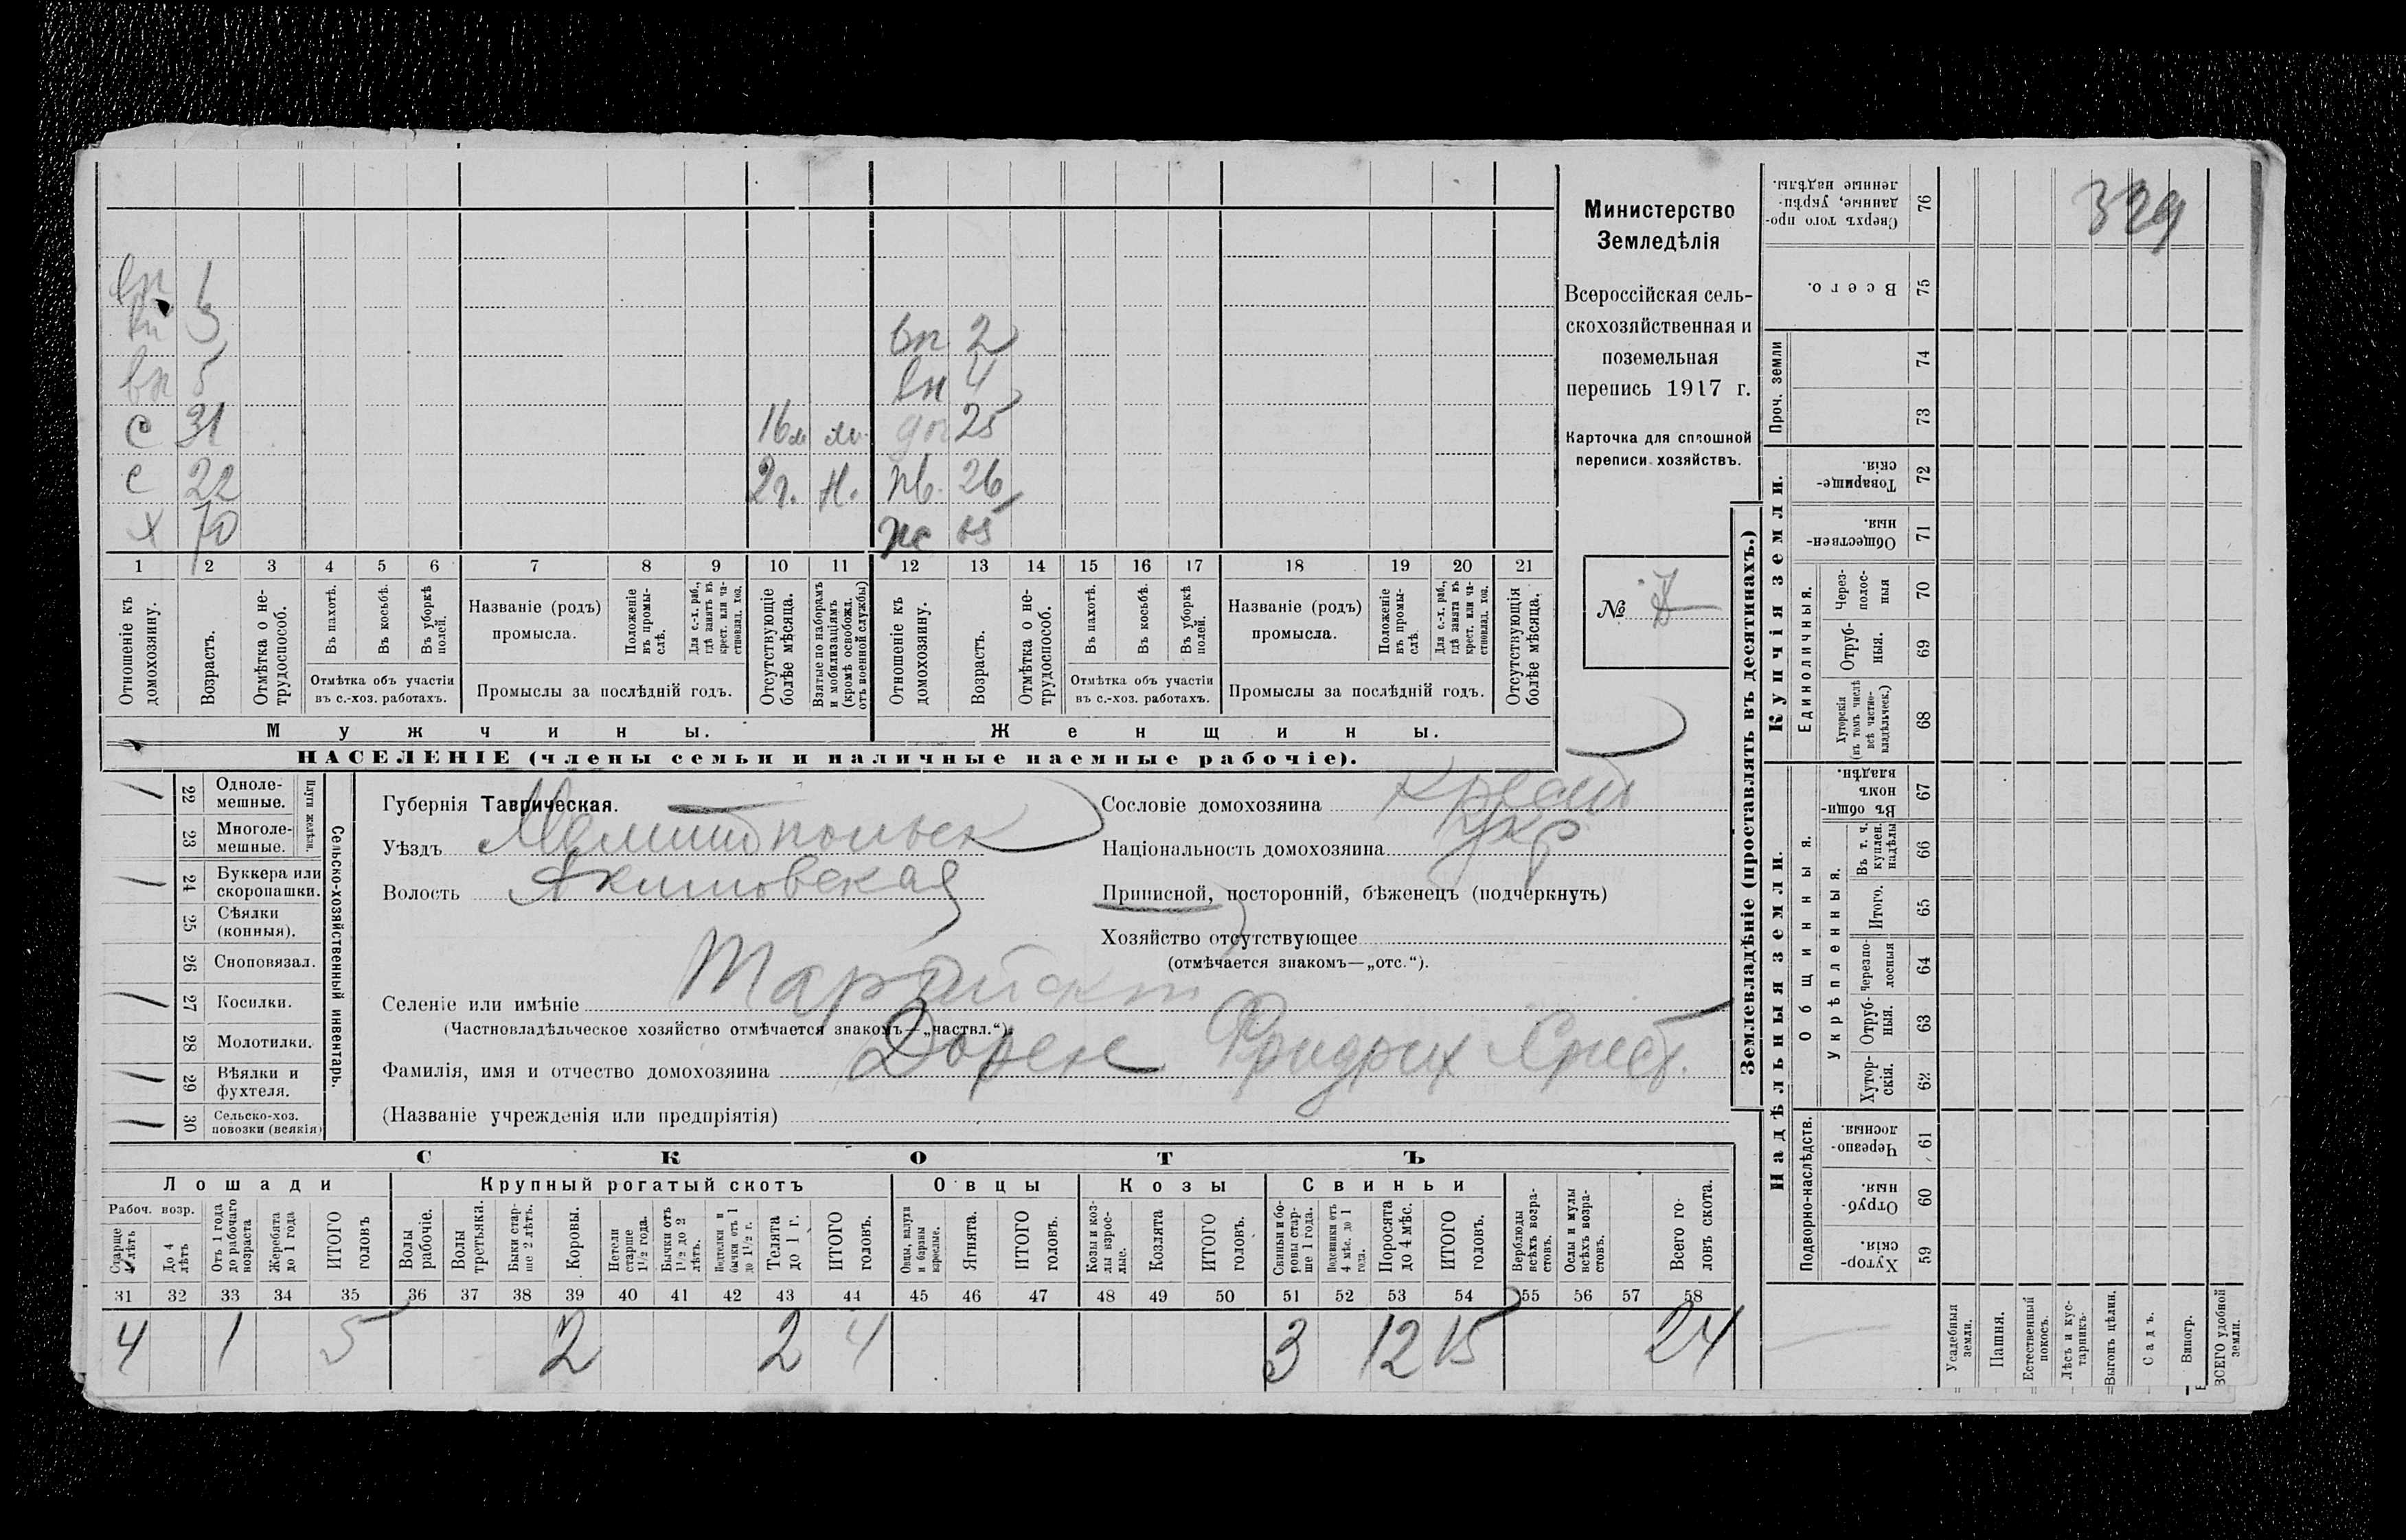 329
Министерство
Земледѣлія
Всероссійская сель-
скохозяйственная и
поземельная
перепись 1917 г.
Карточка для сплошной
переписи хозяйствъ.
№
вп
вп 5
с 31
с 22
х 70
16м
2г. Н.
вп 2
вн 4
25
26
1 2 3 4 5 6 7 8 9 10 11 12 13 14 15 16 17 18 19 20 21
Отношеніе къ домохозяину.
Возрастъ.
Отмѣтка о не-трудоспособ.
Въ пахотѣ.
Въ косьбѣ.
Въ уборкѣ полей.
Отмѣтка объ участіи въ с.-хоз. работахъ.
Названіе (родъ) промысла.
Положеніе въ промы-слѣ.
Для с.-х. раб., гдѣ занятъ въ крест. или ча-стновлад. хоз.
Промыслы за послѣдній годъ.
Отсутствующіе болѣе мѣсяца.
Взятые по наборамъ и мобилизаціямъ (кромѣ освобожд. отъ военной службы)
Отношеніе къ домохозяину.
Возрастъ.
Отмѣтка о не-трудоспособ.
Въ пахотѣ.
Въ косьбѣ.
Въ уборкѣ полей.
Отмѣтка объ участіи въ с.-хоз. работахъ.
Названіе (родъ) промысла.
Положеніе въ промы-слѣ.
Для с.-х. раб., гдѣ занята въ крест. или ча-стновлад. хоз.
Промыслы за послѣдній годъ.
Отсутствующія болѣе мѣсяца.
Мужчины.
Женщины.
НАСЕЛЕНІЕ (члены семьи и наличные наемные рабочіе).
Сельско-хозяйственный инвентарь.
Плуги желѣзн.
22 Одноле-мешные.
23 Многоле-мешные.
24 Буккера или скоропашки.
25 Сѣялки (конныя).
26 Сноповязал.
27 Косилки.
28 Молотилки.
29 Вѣялки и фухтеля.
30 Сельско-хоз. повозки (всякія)
Губернія Таврическая.
Уѣздъ Мелитопольск
Волость Акимовская
Сословіе домохозяина Крест
Національность домохозяина Укр
Приписной, посторонній, бѣженецъ (подчеркнуть)
Хозяйство отсутствующее
(отмѣчается знакомъ—„отс.“).
Селеніе или имѣніе
(Частновладѣльческое хозяйство отмѣчается знакомъ—„частвл.“).
Фамилія, имя и отчество домохозяина Дорен Фридрих Христ.
(Названіе учрежденія или предпріятія)
СКОТЪ
Лошади
Крупный рогатый скотъ
Овцы
Козы
Свиньи
Рабоч. возр.
Старше 4 лѣтъ
До 4 лѣтъ
Отъ 1 года до рабочаго возраста
Жеребята до 1 года
ИТОГО головъ
Волы рабочіе.
Волы третьяки.
Быки стар-ше 2 лѣтъ.
Коровы.
Нетели старше 1½ года.
Бычки отъ 1½ до 2 лѣтъ.
Подтелки и бычки отъ 1 до 1½ г.
Телята до 1 г.
ИТОГО головъ.
Овцы, валухи и бараны взрослые.
Ягнята.
ИТОГО головъ.
Козы и коз-лы взрос-лые.
Козлята
ИТОГО головъ.
Свиньи и бо-ровы стар-ше 1 года.
Подсвинки отъ 4 мѣс. до 1 года.
Поросята до 4 мѣс.
ИТОГО головъ.
Верблюды всѣхъ возра-стовъ.
Ослы и мулы всѣхъ возра-стовъ.
Всего го-ловъ скота.
31 32 33 34 35 36 37 38 39 40 41 42 43 44 45 46 47 48 49 50 51 52 53 54 55 56 57 58
4 1 5 2 2 4 3 12 15 24
Землевладѣніе (проставлять въ десятинахъ.)
Надѣльныя земли.
Купчія земли.
Проч. земли
Подворно-наслѣдств.
Общинныя.
Укрѣпленныя.
Единоличныя.
Сверхъ того про-данные, укрѣп-ленные надѣлы. 76
Всего. 75
74
73
Товарище-скія. 72
Обществен-ныя. 71
Через-полос-ныя 70
Отруб-ныя. 69
Хуторскія (въ томъ числѣ всѣ частно-владѣльческ.) 68
Въ общин-номъ владѣн. 67
Въ т. ч. куплен. надѣлы 66
Итого. 65
Черезпо-лосныя 64
Отруб-ныя. 63
Хутор-скія. 62
Черезпо-лосныя. 61
Отруб-ныя. 60
Хутор-скія. 59
Усадебныя земли.
Пашня.
Естественный покосъ.
Лѣсъ и кус-тарникъ.
Выгонъ цѣлин.
Садъ.
Виногр.
ВСЕГО удобной земли.